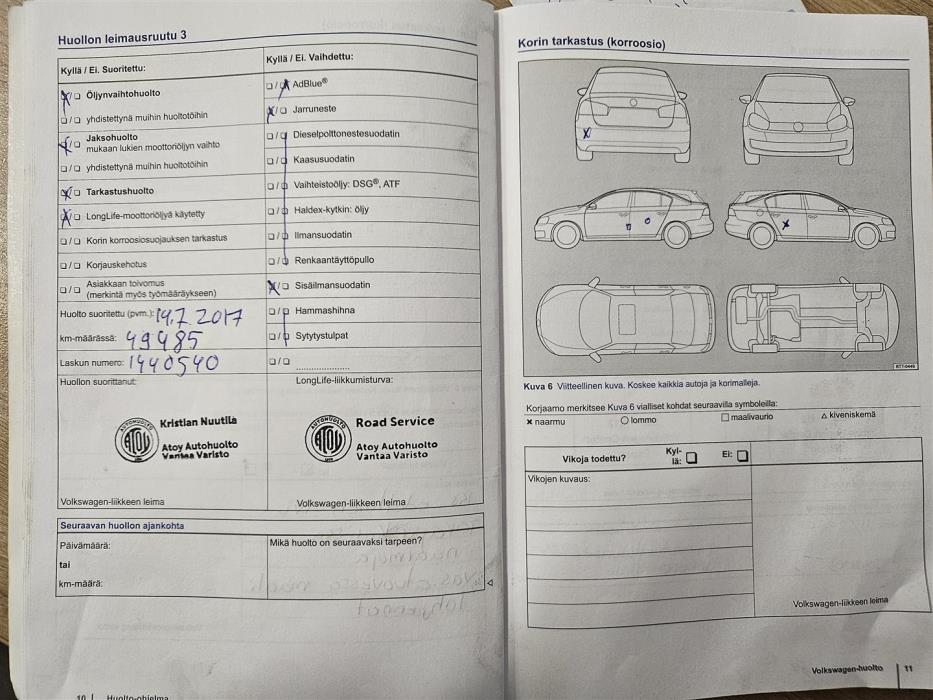 Huollon leimausruutu 3
Kyllä / Ei. Suoritettu:
Öljynvaihtohuolto
yhdistettynä muihin huoltotöihin
Jaksohuolto
mukaan lukien moottoriöljyn vaihto
yhdistettynä muihin huoltotöihin
Tarkastushuolto
LongLife-moottoriöljyä käytetty
Korin korroosiosuojauksen tarkastus
Korjauskehotus
Asiakkaan toivomus
(merkintä myös työmääräykseen)
Kyllä / Ei. Vaihdettu:
AdBlue®
Jarruneste
Dieselpolttonestesuodatin
Kaasusuodatin
Vaihteistoöljy: DSG®, ATF
Haldex-kytkin: öljy
Ilmansuodatin
Renkaantäyttöpullo
Sisäilmansuodatin
Hammashihna
Sytytystulpat
Huolto suoritettu (pvm.): 19.7.2017
km-määrässä: 49485
Laskun numero: 1440540
Huollon suorittanut:
ATOY
Kristian Nuutila
Atoy Autohuolto
Vantaa Varisto
Volkswagen-liikkeen leima
LongLife-liikkumisturva:
ATOY
Road Service
Atoy Autohuolto
Vantaa Varisto
Volkswagen-liikkeen leima
Seuraavan huollon ajankohta
Päivämäärä:
tai
km-määrä:
Mikä huolto on seuraavaksi tarpeen?
10 | Huolto-ohjelma
Korin tarkastus (korroosio)
Kuva 6 Viitteellinen kuva. Koskee kaikkia autoja ja korimalleja.
Korjaamo merkitsee Kuva 6 vialliset kohdat seuraavilla symboleilla:
× naarmu
○ lommo
□ maalivaurio
△ kiveniskemä
Vikoja todettu?
Kyl-
lä:
Ei:
Vikojen kuvaus:
Volkswagen-liikkeen leima
Volkswagen-huolto | 11